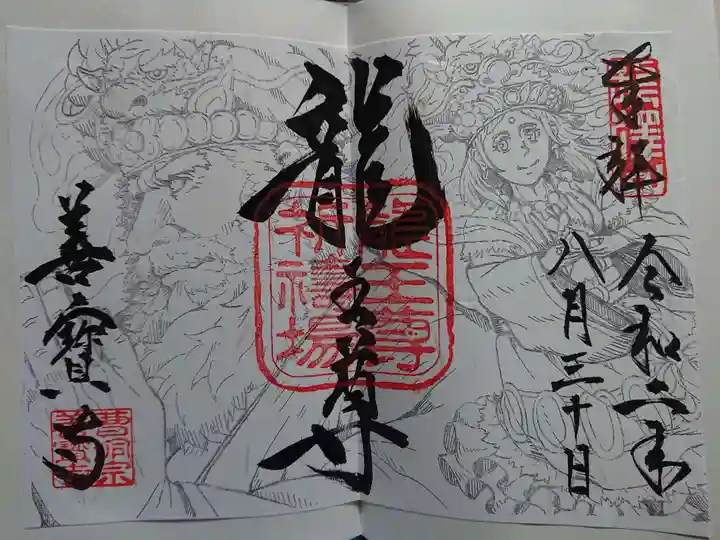 奉拝
令和二年
八月三十日
龍王尊
龍王尊
祈祷場
善寳寺
曹洞宗